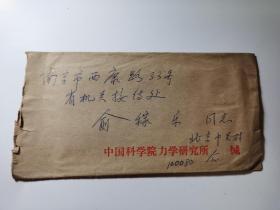 南京市西康路33号
省机关接待处
俞稼禾 同志
北京中关村
中国科学院力学研究所 缄
100080